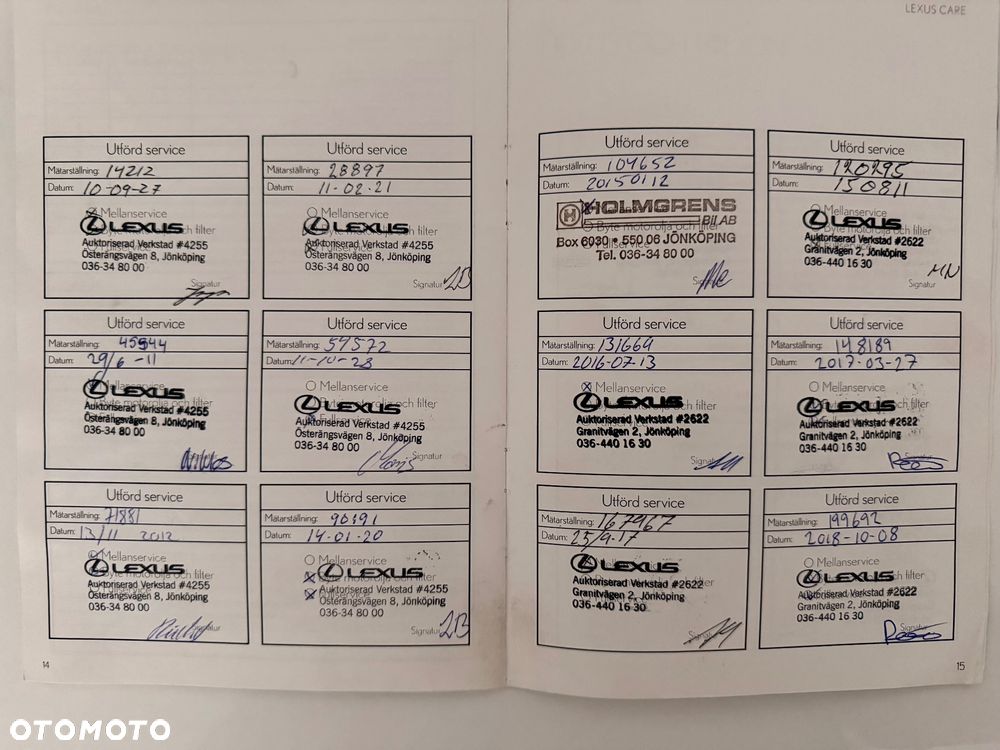 LEXUS CARE
Utförd service
Mätarställning: 14212
Datum: 10-09-27
Mellanservice
LEXUS
Auktoriserad Verkstad #4255
Österängsvägen 8, Jönköping
036-34 80 00
Signatur
Utförd service
Mätarställning: 28897
Datum: 11-02-21
Mellanservice
LEXUS
Byte motorolja och filter
Auktoriserad Verkstad #4255
Österängsvägen 8, Jönköping
036-34 80 00
Signatur
Utförd service
Mätarställning: 45944
Datum: 29/6-11
Mellanservice
LEXUS
Byte motorolja och filter
Auktoriserad Verkstad #4255
Österängsvägen 8, Jönköping
036-34 80 00
Utförd service
Mätarställning: 54572
Datum: 11-10-28
Mellanservice
LEXUS
Byte motorolja och filter
Auktoriserad Verkstad #4255
Österängsvägen 8, Jönköping
036-34 80 00
Signatur
Utförd service
Mätarställning: 71881
Datum: 13/11 2012
Mellanservice
LEXUS
Byte motorolja och filter
Auktoriserad Verkstad #4255
Österängsvägen 8, Jönköping
036-34 80 00
Signatur
Utförd service
Mätarställning: 90391
Datum: 14-01-20
Mellanservice
LEXUS
Byte motorolja och filter
Auktoriserad Verkstad #4255
Fullservice
Österängsvägen 8, Jönköping
036-34 80 00
Signatur 2B
14
Utförd service
Mätarställning: 104652
Datum: 20150112
HOLMGRENS
BIL AB
Byte motorolja och filter
Box 6030 • 550 06 JÖNKÖPING
Tel. 036-34 80 00
Utförd service
Mätarställning: 120295
Datum: 150811
Mellanservice
LEXUS
Byte motorolja och filter
Auktoriserad Verkstad #2622
Granitvägen 2, Jönköping
036-440 16 30
MN
Signatur
Utförd service
Mätarställning: 131664
Datum: 2016-07-13
Mellanservice
LEXUS
Auktoriserad Verkstad #2622
Granitvägen 2, Jönköping
036-440 16 30
Signatur
Utförd service
Mätarställning: 148189
Datum: 2017-03-27
Mellanservice
LEXUS
Auktoriserad Verkstad #2622
Granitvägen 2, Jönköping
036-440 16 30
Utförd service
Mätarställning: 167967
Datum: 25/9-17
LEXUS
Auktoriserad Verkstad #2622
Granitvägen 2, Jönköping
036-440 16 30
Signatur
Utförd service
Mätarställning: 199692
Datum: 2018-10-08
Mellanservice
LEXUS
Auktoriserad Verkstad #2622
Granitvägen 2, Jönköping
036-440 16 30
15
OTOMOTO